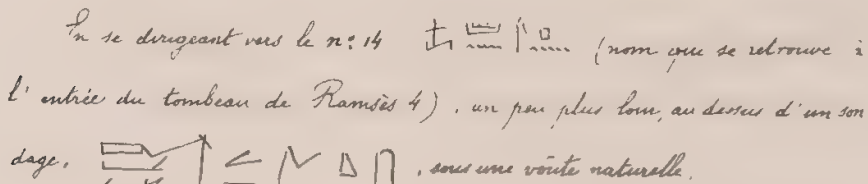 En se dirigeant vers le n° 14 (nom que se retrouve à
l'entrée du tombeau de Ramsès 4), un peu plus loin, au dessus d'un son
dage, , sous une voûte naturelle.